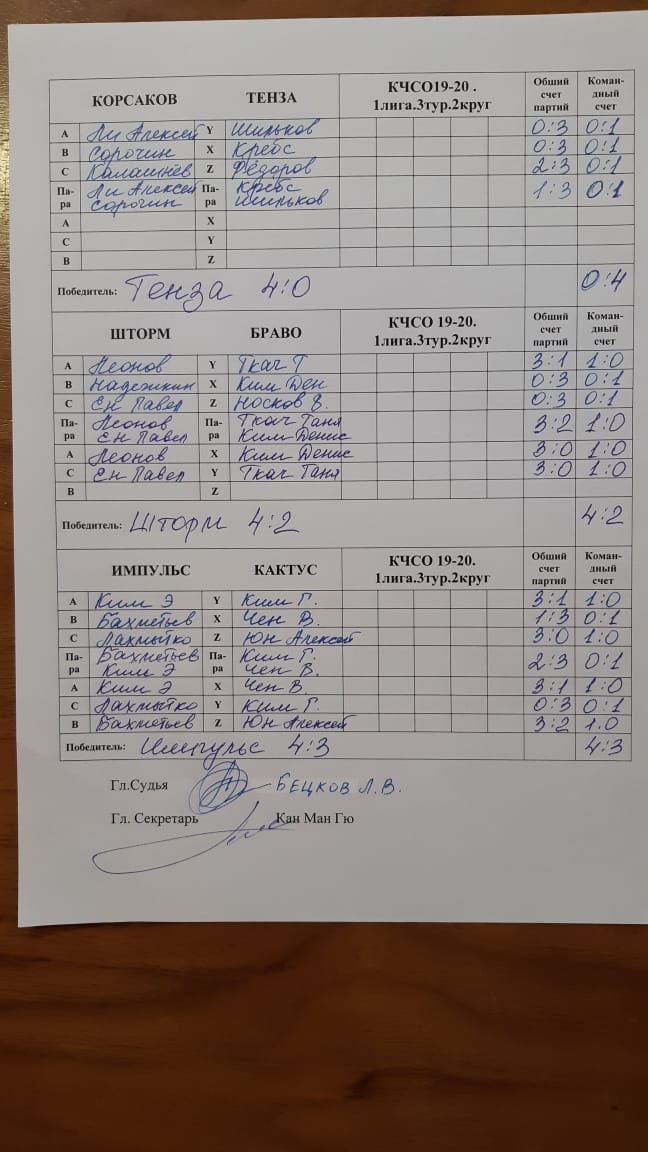 КОРСАКОВ ТЕНЗА КЧСО19-20 . 1лига.3тур.2круг Общий счет партий Коман-дный счет
А Ли Алексей Y Шильков 0:3 0:1
В Сорочин X Кребс 0:3 0:1
С Калашнев Z Фёдоров 2:3 0:1
Па-ра Ли Алексей Сорочин Па-ра Кребс Шильков 1:3 0:1
А X
С Y
В Z
Победитель: Тенза 4:0 0:4
ШТОРМ БРАВО КЧСО 19-20. 1лига.3тур.2круг Общий счет партий Коман-дный счет
А Леонов Y Ткач Т 3:1 1:0
В Надежкин X Ким Ден 0:3 0:1
С Ен Павел Z Носков В. 0:3 0:1
Па-ра Леонов Ен Павел Па-ра Ткач Таня Ким Денис 3:2 1:0
А Леонов X Ким Денис 3:0 1:0
С Ен Павел Y Ткач Таня 3:0 1:0
В Z
Победитель: Шторм 4:2 4:2
ИМПУЛЬС КАКТУС КЧСО 19-20. 1лига.3тур.2круг Общий счет партий Коман-дный счет
А Ким Э Y Ким Г. 3:1 1:0
В Бахметьев X Чен В. 1:3 0:1
С Лахмытко Z Юн Алексей 3:0 1:0
Па-ра Бахметьев Ким Э Па-ра Ким Г. Чен В. 2:3 0:1
А Ким Э X Чен В. 3:1 1:0
С Лахмытко Y Ким Г. 0:3 0:1
В Бахметьев Z Юн Алексей 3:2 1.0
Победитель: Импульс 4:3 4:3
Гл.Судья БЕЦКОВ Л.В.
Гл. Секретарь Кан Ман Гю